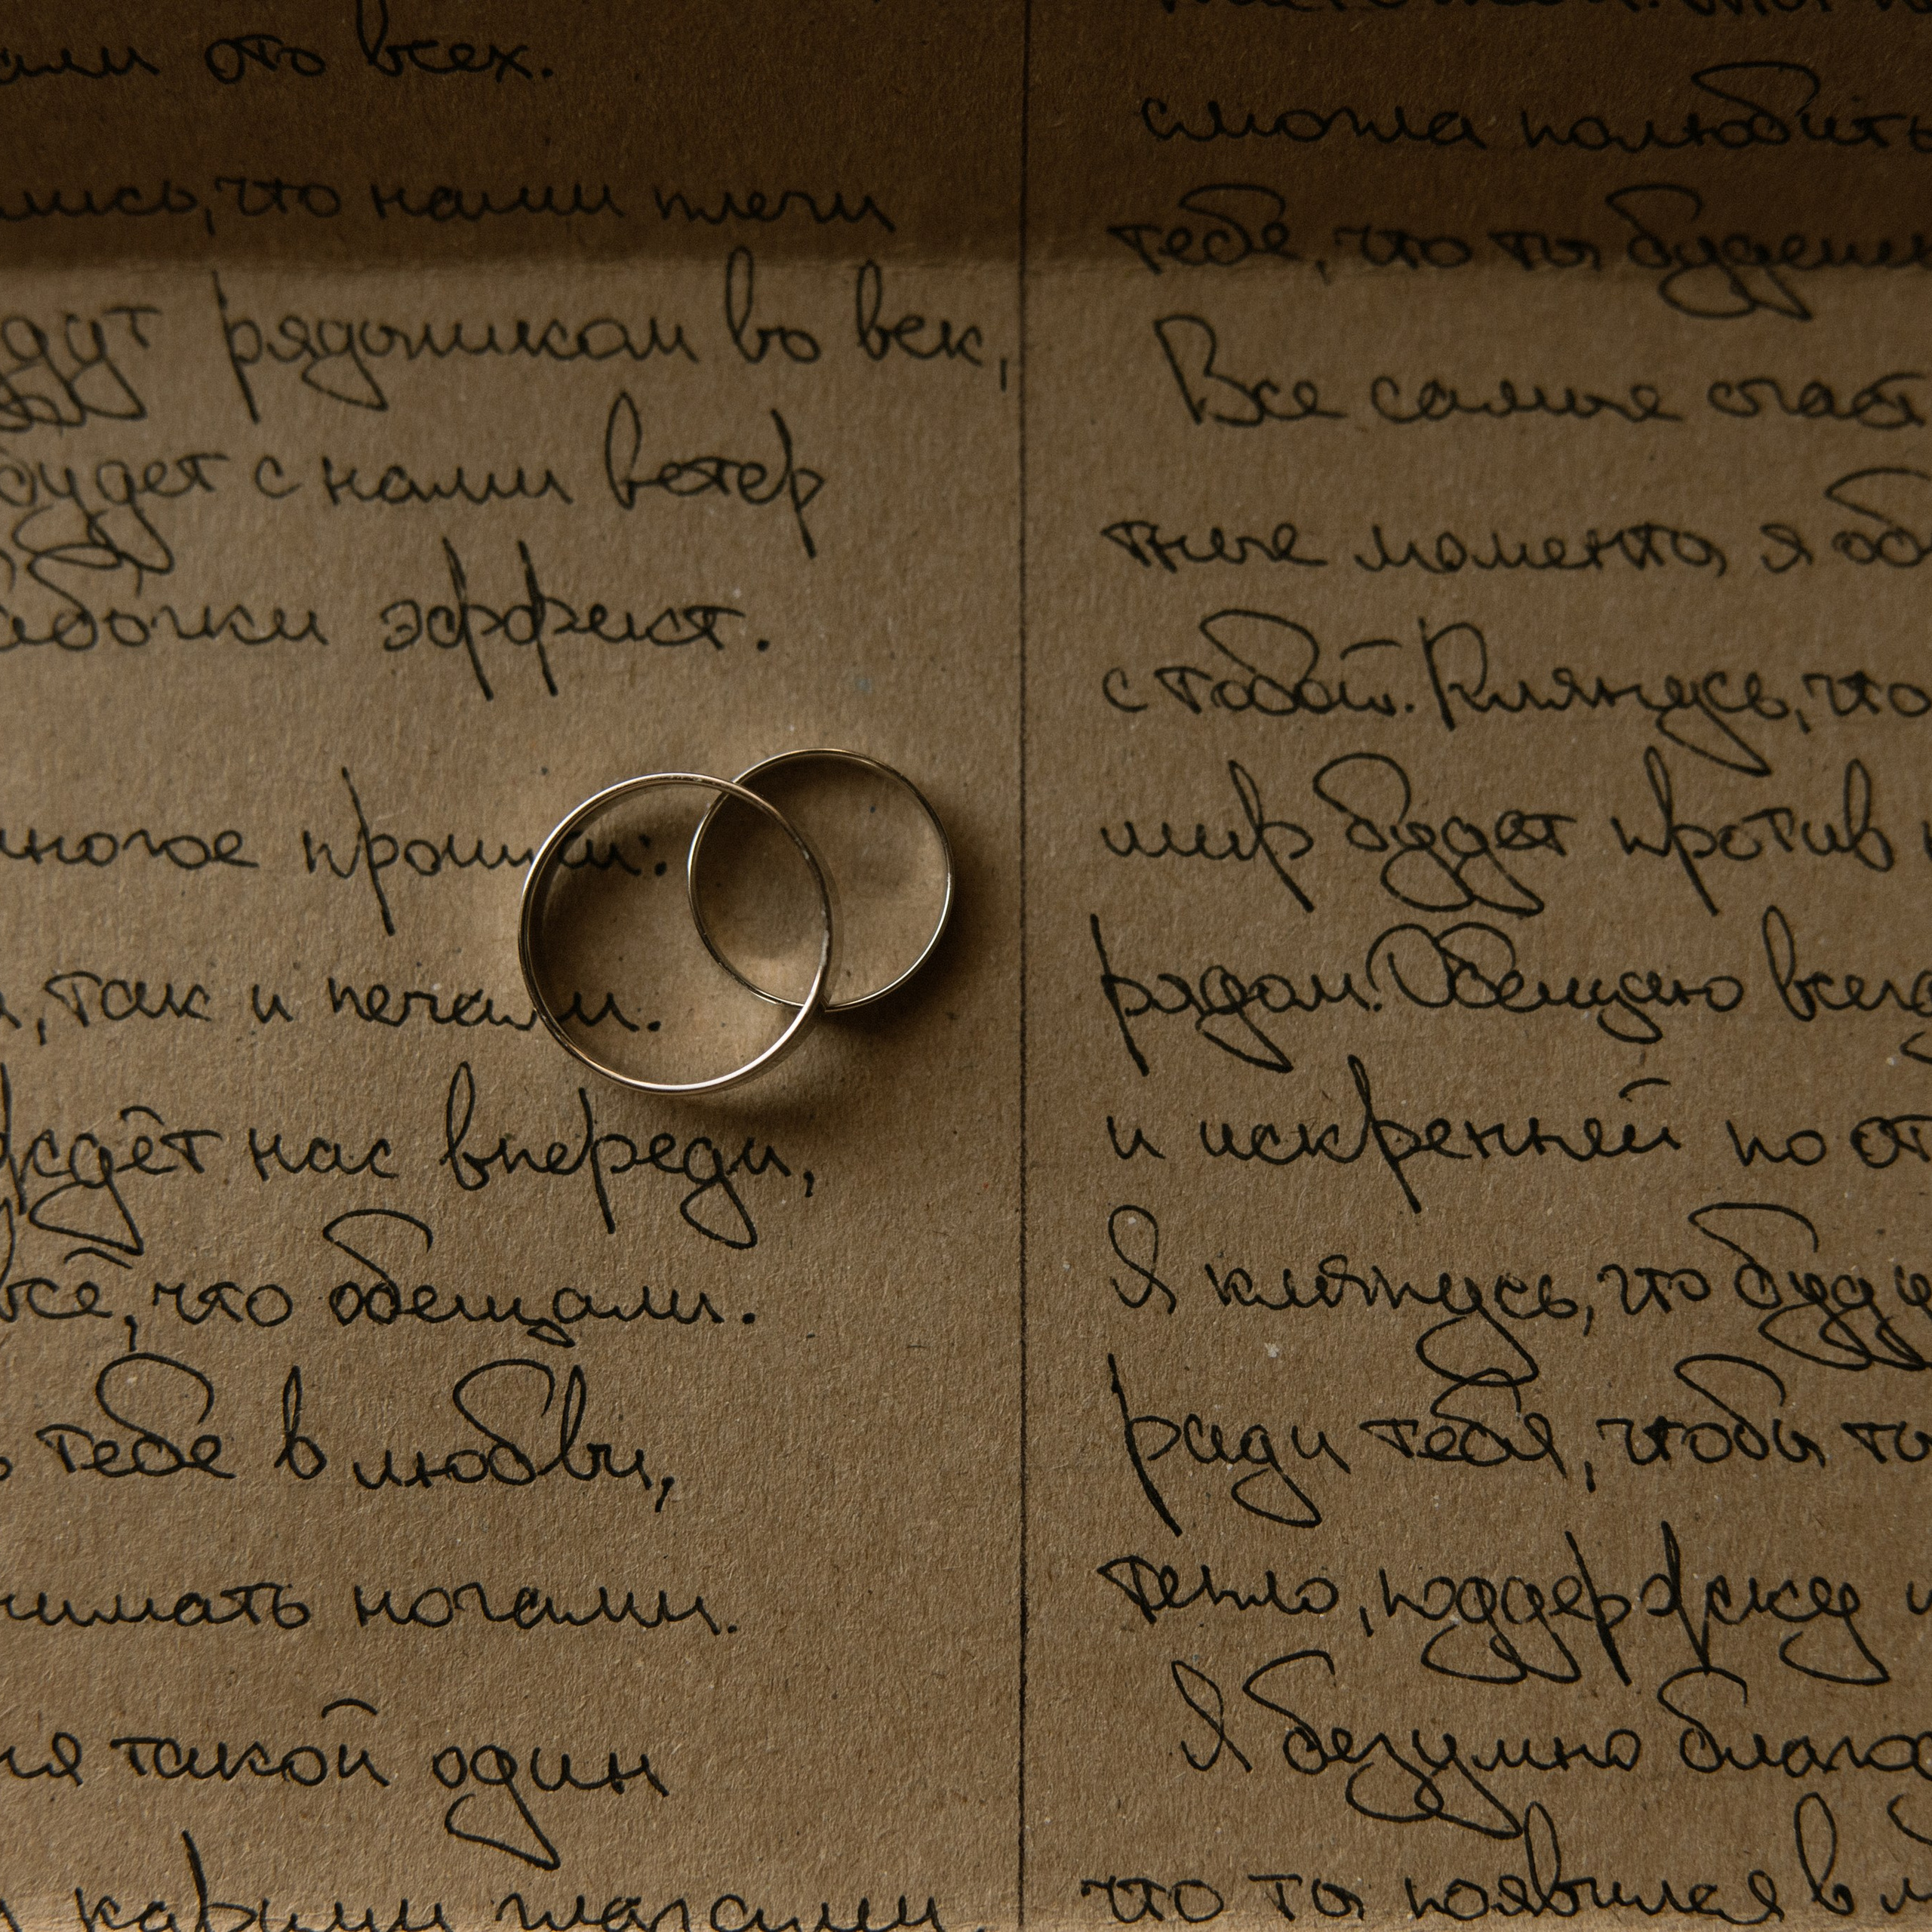 ото всех.
что наши плечи
рядышком во век,
будет с нами ветер
эффект.
прошли:
так и печали.
ждёт нас впереди,
всё, что обещали.
тебе в любви,
ногами.
такой один
карими глазами.
смогла полюбить
тебе, что ты будешь
Все самые счаст
ные моменты, я об
с тобой. Клянусь, что
мир будет против
рядом. Обещаю всег
и искренней по от
Я клянусь, что буду
ради тебя, чтобы ты
тепло, поддержку и
Я безумно благо
что ты появился в